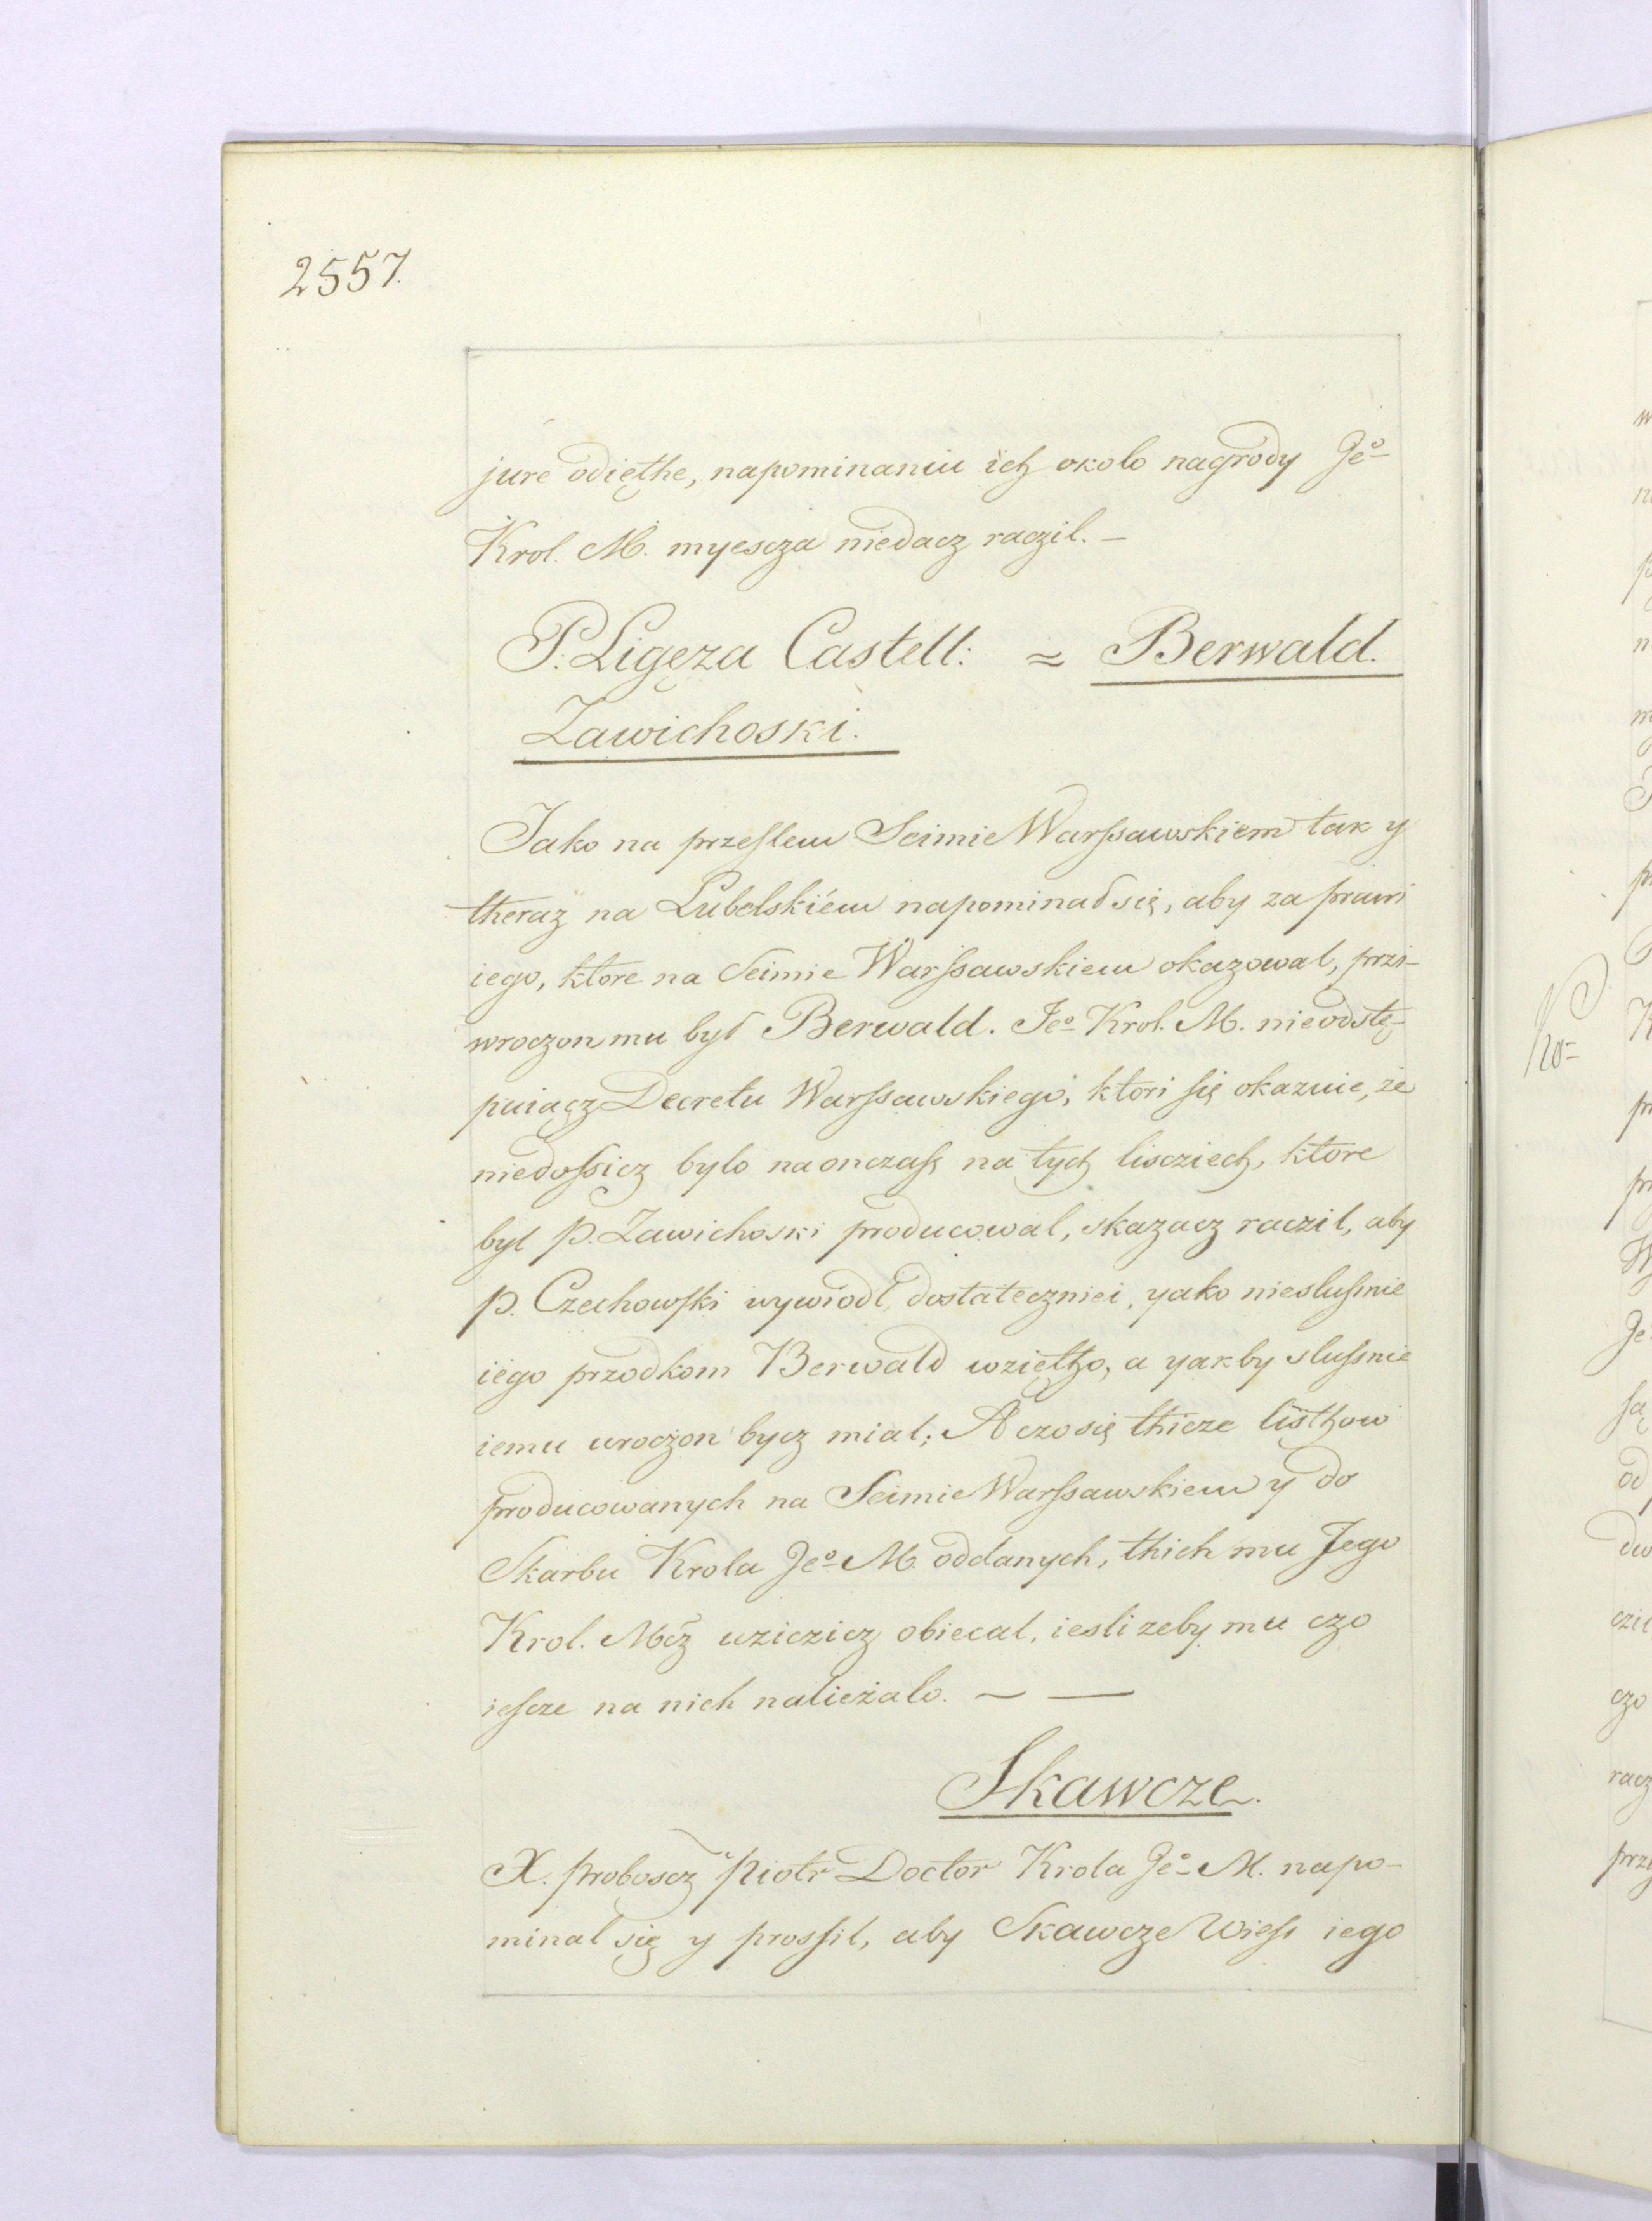 2557.
jure odięthe, napominaniu ich okolo nagrody Jeº
Krol. M. myescza niedacz raczil. —
P. Ligęza Castell: = Berwald.
Zawichoski.
Jako na przeslem Seimie Warssawskiem tak y
theraz na Lubelskiém napominał się, aby za prawi
iego, ktore na Seimie Warssawskiem okazowal, przi-
wroczon mu był Berwald. Jeº Krol. M. nieodstę-
puiącz Decretu Warssawskiego, ktori się okazuie, że
niedossicz bylo naonczass na tych lisciech, ktore
byl P. Zawichoski producowal, skazacz raczil, aby
p. Czechowski wywiodł dostateczniei, yako nieslusnie
iego przodkom Berwald wziętho, a yakby slussnie
iemu wroczon bycz mial; A czo się thicze listhow
producowanych na Seimie Warssawskiem y do
Skarbu Krola Jeº M. oddanych, thich mu Jego
Krol. Mcz uziczicz obiecal, iesli zeby mu czo
iescze na nich nalieżalo. — —
Skawcze.
X. proboscz Piotr Doctor Krola Jeº M. napo-
minal się y prossil, aby Skawcze Wiess iego